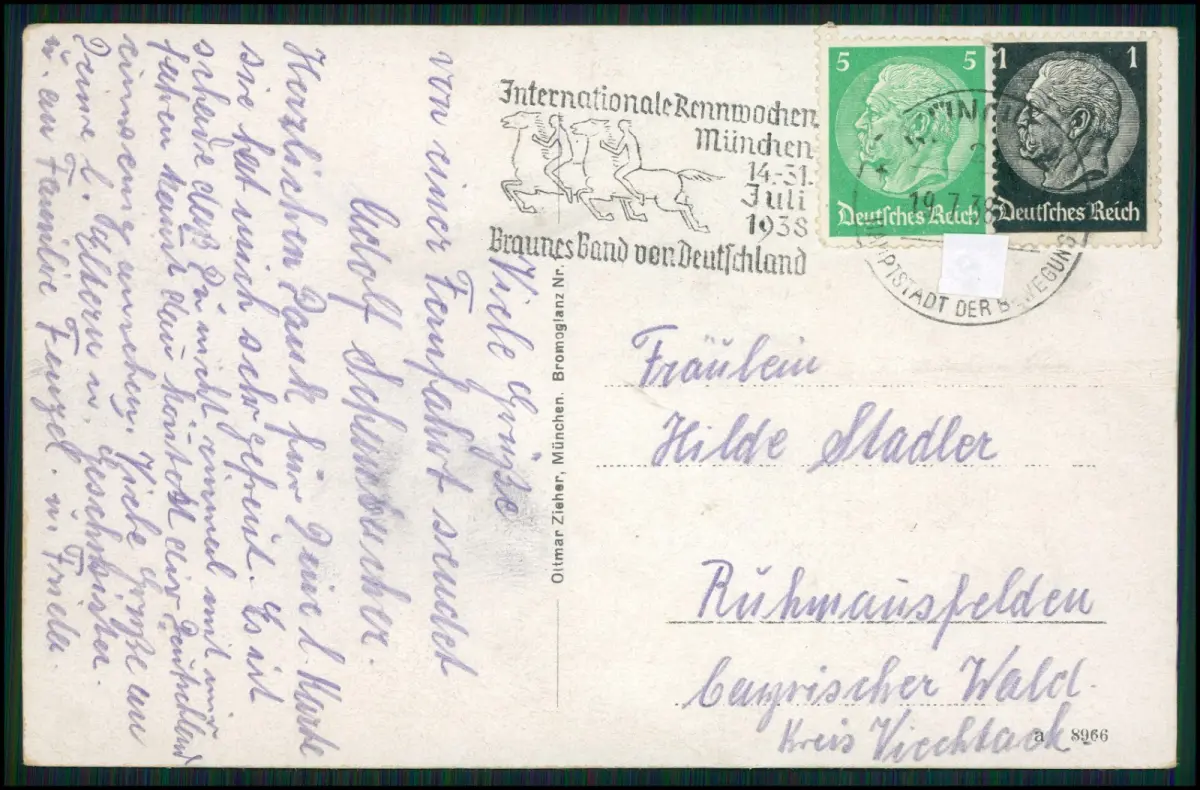 Internationale Rennwochen
München
14.-31.
Juli
1938
Braunes Band von Deutschland
5 5
Deutsches Reich
1 1
Deutsches Reich
19.7.38
HAUPTSTADT DER BEWEGUNG
Viele Grüße
von einer Fernfahrt sendet
Adolf
Herzlichen Dank für Deine l. Karte
sie hat mich sehr gefreut. Es ist
schade daß Du nicht einmal mit mir
fahren kannst dann könntest Deutschland
einwenig ansehen. Viele Grüße an
Deine l. Eltern u. Geschwister
u. an Familie Fenzel. u. Frieda.
Ottmar Zieher, München. Bromoglanz Nr.
Fräulein
Hilde Stadler
Ruhmannsfelden
bayrischer Wald.
Kreis Viechtach
a 8966